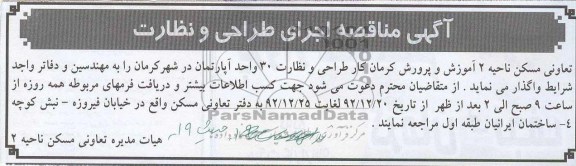 آگهی مناقصه اجرای طراحی و نظارت
تعاونی مسکن ناحیه ۲ آموزش و پرورش کرمان کار طراحی و نظارت ۳۰ واحد آپارتمان در شهرکرمان را به مهندسین و دفاتر واجد
شرایط واگذار می نماید . از متقاضیان محترم دعوت می شود جهت کسب اطلاعات بیشتر و دریافت فرمهای مربوطه همه روزه از
ساعت ۹ صبح الی ۲ بعد از ظهر از تاریخ ۹۲/۱۲/۲۰ لغایت ۹۲/۱۲/۲۵ به دفتر تعاونی مسکن واقع در خیابان فیروزه - نبش کوچه
۴- ساختمان ایرانیان طبقه اول مراجعه نمایند .
هیات مدیره تعاونی مسکن ناحیه ۲
ParsNamadData
۱۹